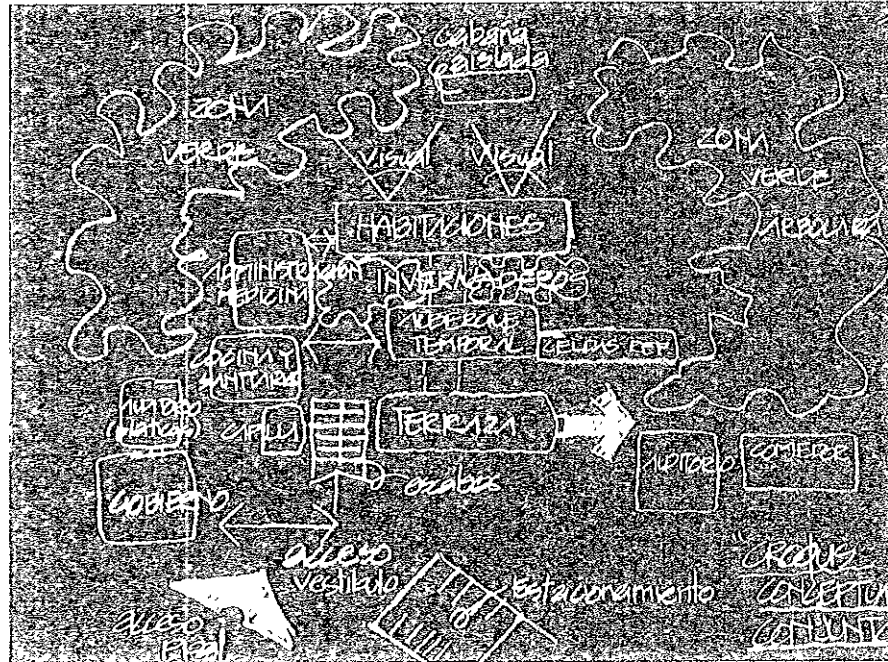 cabaña
aislada
ZONA
VERDE
visual
visual
ZONA
VERDE
ARBOLADA
HABITACIONES
ADMINISTRACION
MEDICINA
INVERNADEROS
ALBERGUE
TEMPORAL
CELDAS
COCINA Y
SANITARIA
CAPILLA
TERRAZA
AUDITORIO
COMEDOR
GOBIERNO
acceso
vestíbulo
Estacionamiento
acceso
"CROQUIS
CONCEPTUA
CONJUNTO